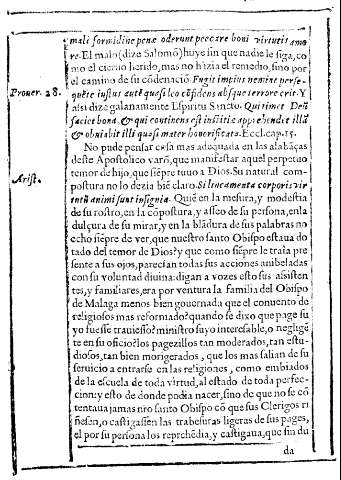 mali formidine penæ oderunt peccare boni virtutis amo
re. El malo (dize Salomõ) huye sin que nadie le siga, co
mo el cieruo herido, mas no hàzia el remedio, sino por
el camino de su cõdenaciõ Fugit impius nemine perse-
Prouer. 28.
quẽte iustus autẽ quasi leo cõfidens absque terrore erit. Y
assi dize galanamente Espiritu Sancto. Qui timet Deũ
faciet bona, & qui continens est iustitiæ apprehendet illã
& obuiabit illi quasi mater honorificata. Eccl. cap. 15.
No pude pensar cosa mas adequada en las alabãças
deste Apostolico varõ, que manifestar aquel perpetuo
temor de hijo, que siẽpre tuuo a Dios. Su natural com-
postura no lo dezia biẽ claro. Si lineamenta corporis vir
Arist.
tutũ animi sunt insignia. Quiẽ en la mesura, y modestia
de su rostro, en la cõpostura, y asseo de su persona, en la
dulçura de su mirar, y en la blãdura de sus palabras no
echo siẽpre de ver, que nuestro santo Obispo estaua do
tado del temor de Dios? y que como siẽpre le traìa pre
sente a sus ojos, parecian todas sus acciones anibeladas
con su voluntad diuina: digan a vozes esto sus asisten
tes, y familiares, era por ventura la familia del Obispo
de Malaga menos bien gouernada que el conuento de
religiosos mas reformado? quando se dixo que page su
yo fuesse trauiesso? ministro suyo interesable, o negligẽ
te en su oficio? los pagezillos tan moderados, tan estu-
diosos, tan bien morigerados, que los mas salian de su
seruicio a entrarse en las religiones, como embiados
de la escuela de toda virtud, al estado de toda perfec-
cion: y esto de donde podia nacer, sino de que no se cõ
tentaua jamas nro santo Obispo cõ que sus Clerigos ri
ñesen, o castigassen las trabesuras ligeras de sus pages,
el por su persona los reprehẽdia, y castigaua, que sin du
da